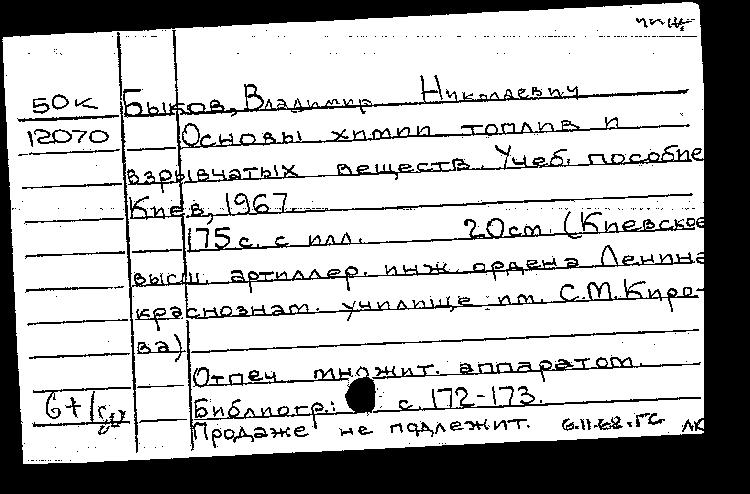 50к Быков, Владимир Николаевич
12070 Основы химии топлив и
взрывчатых веществ. Учеб. пособие
Киев, 1967.
175 с. с илл. 20см. (Киевское
высш. артиллер. инж. ордена Ленина
краснознам. училище им. С.М. Киро-
ва)
Отпеч. множит. аппаратом.
Библиогр.: с. 172-173.
Продаже не подлежит. 6.11.68. ГС ЛК